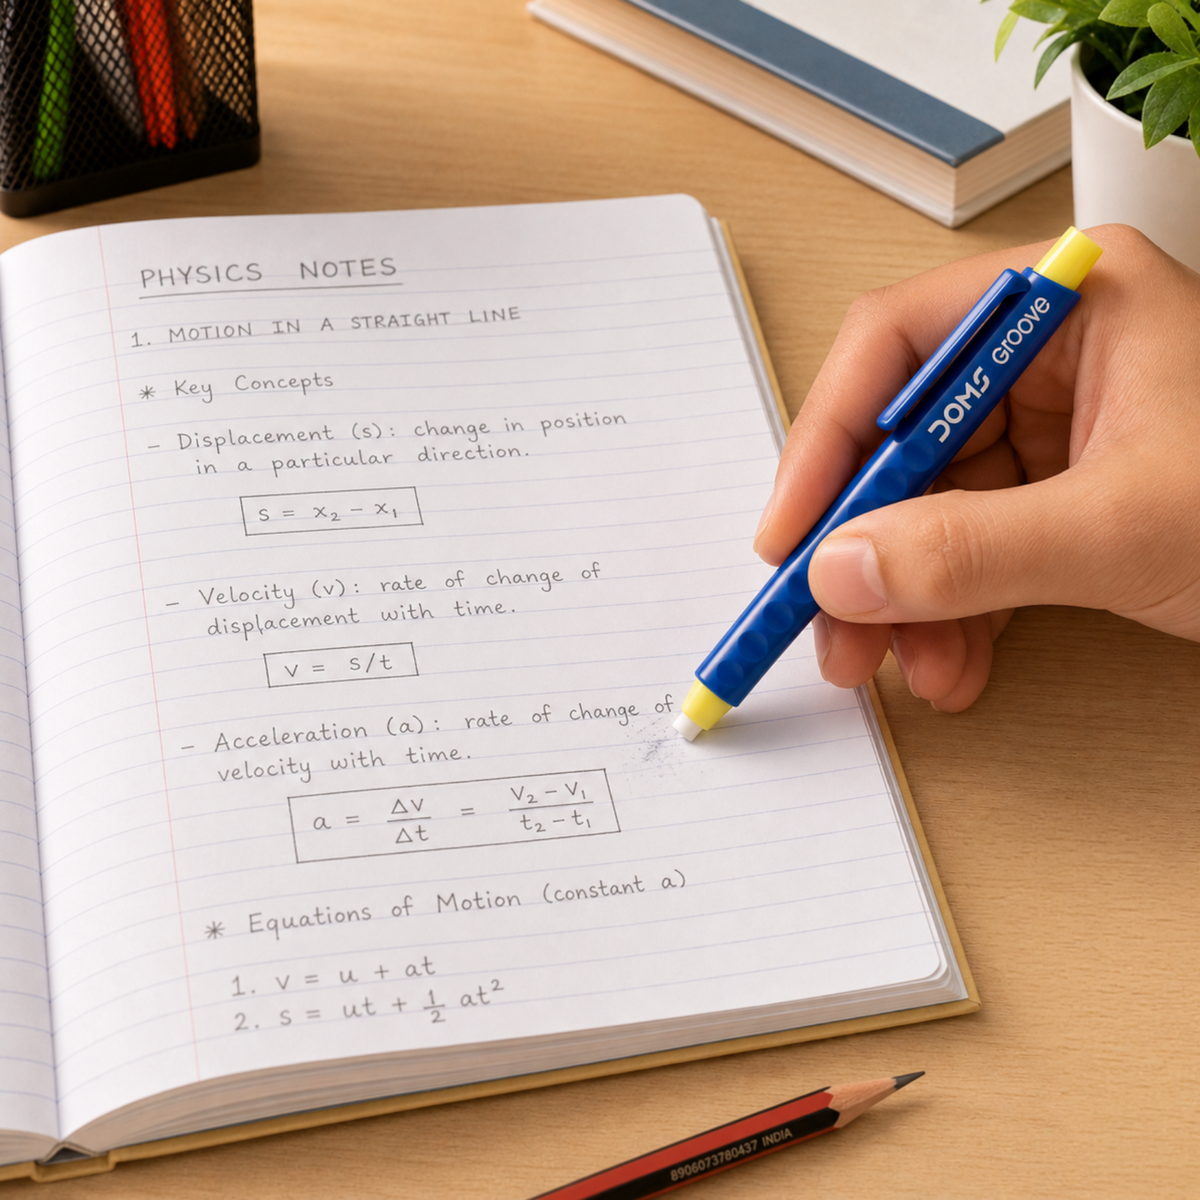 PHYSICS NOTES
1. MOTION IN A STRAIGHT LINE
* Key Concepts
– Displacement (s): change in position
in a particular direction.
s = x₂ – x₁
– Velocity (v): rate of change of
displacement with time.
v = s/t
– Acceleration (a): rate of change of
velocity with time.
a = Δv/Δt = v₂ – v₁/t₂ – t₁
* Equations of Motion (constant a)
1. v = u + at
2. s = ut + 1/2 at²
DOMS Groove
8906073780437 INDIA